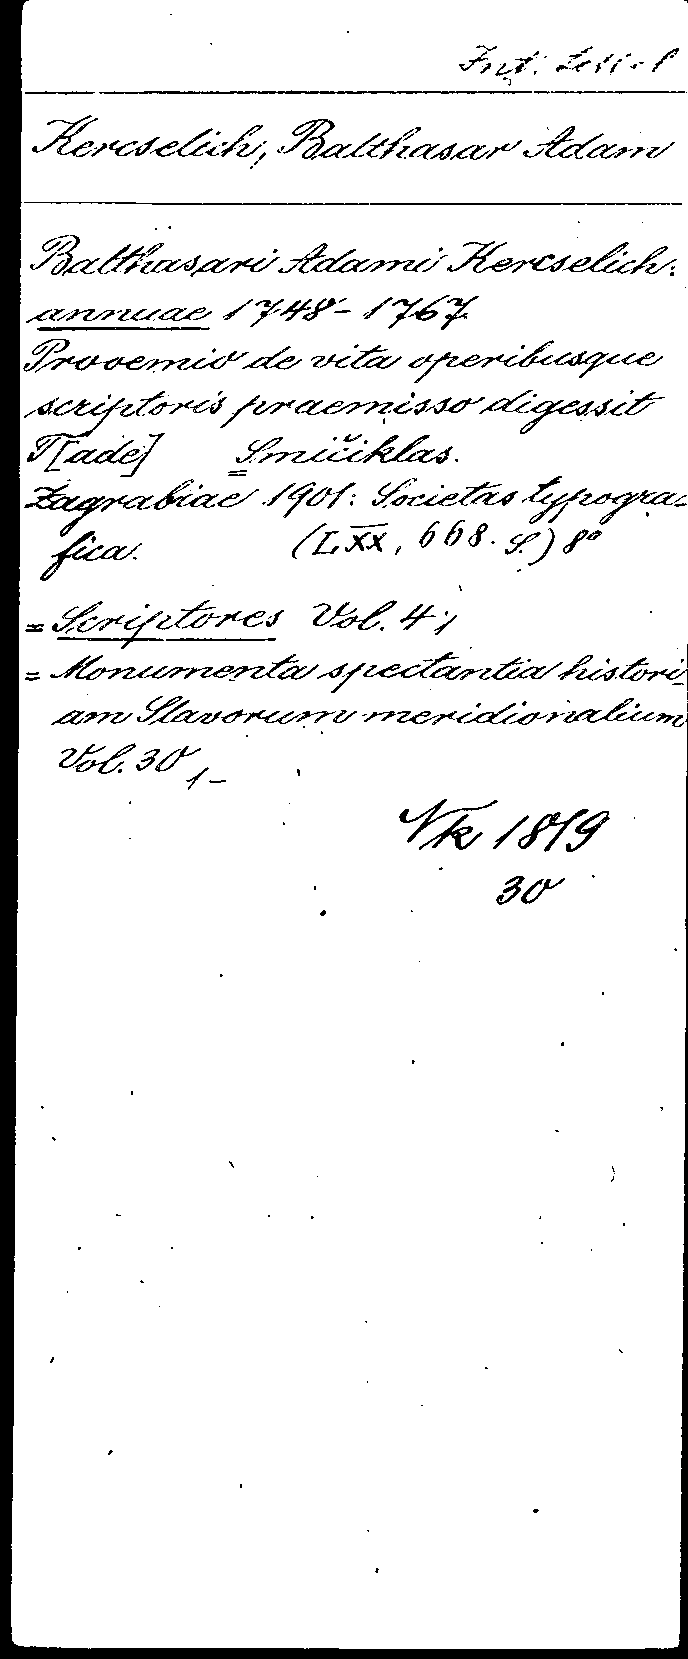 Kercselich, Balthasar Adam
Balthasari Adami Kercselich:
annuae 1748-1767.
Prooemio de vita operibusque
scriptoris praemisso digessit
T[ade] Smičiklas.
Zagrabiae 1901: Societas typogra-
fica. (LXX, 668. S.) 8°
= Scriptores Vol. 4;
= Monumenta spectantia histori-
am Slavorum meridionalium
Vol. 30
Nk 1819
30